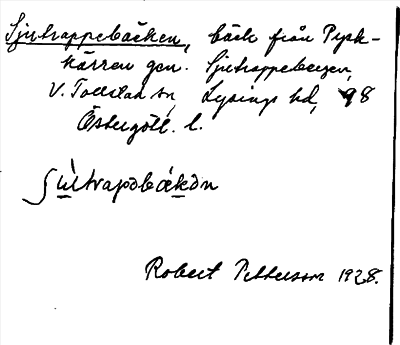 Sjutrappebäcken, bäck från Pysk-
kärren gm. Sjutrappebergen,
V. Tollstad sn, Lysings hd, 98
Östergötl. l.
ʃùltrapəbækən
Robert Petterson 1928.